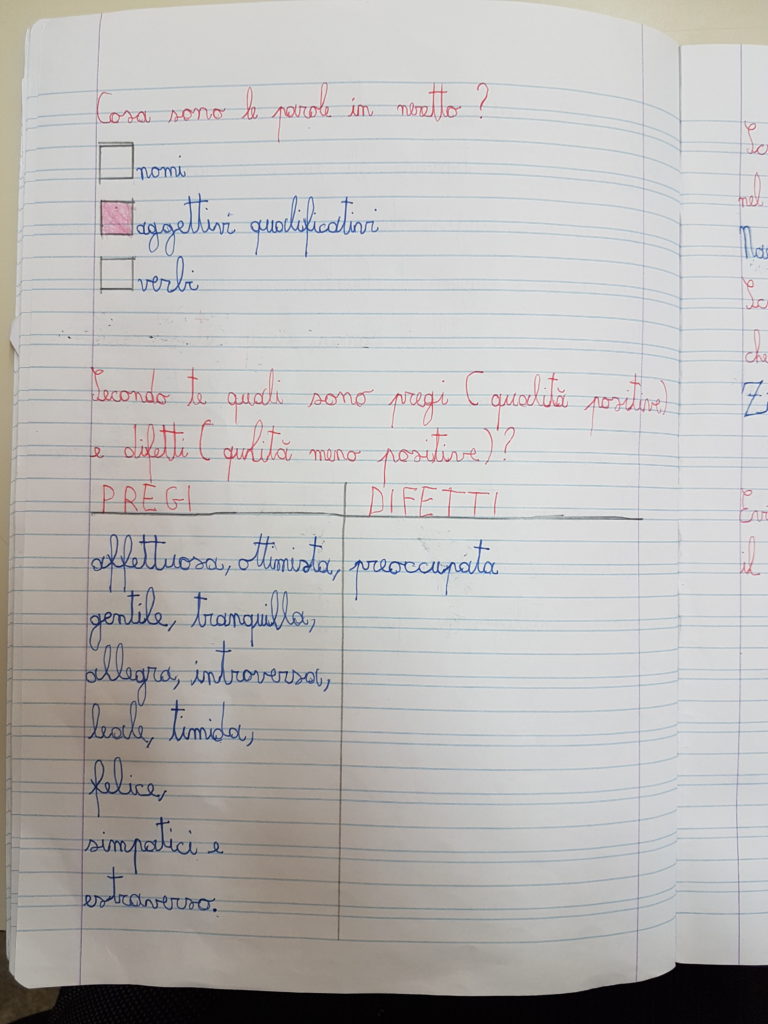 Cosa sono le parole in neretto ?
nomi
aggettivi qualificativi
verbi
Secondo te quali sono pregi ( qualità positive)
e difetti ( qulità meno positive)?
PREGI DIFETTI
affettuosa, ottimista, preoccupata
gentile, tranquilla,
allegra, introversa,
leale, timida,
felice,
simpatici e
estraverso.
nel
che
il